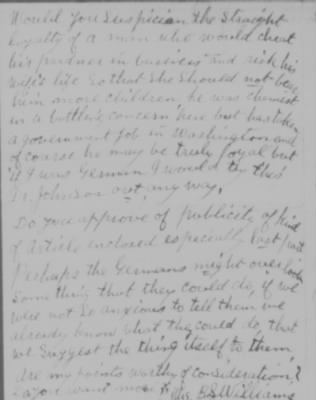 Would you suspicion the straight
loyalty of a man who would cheat
his partner in business and risk his
wife's life so that she should not bear
him more children, he was chemist
in a bottler's concern here but has taken
a government job in Washington and
of course he may be truly loyal but
if I was German I would try this
Dr. Johnson out any way.
Do you approve of publicity of kind
of article enclosed especially last part
Perhaps the Germans might overlook
something that they could do, if we
were not so anxious to tell them we
already know what they could do, that
we suggest the thing itself to them
Are my points worthy of consideration?
you want more Mrs. B.S. Williams